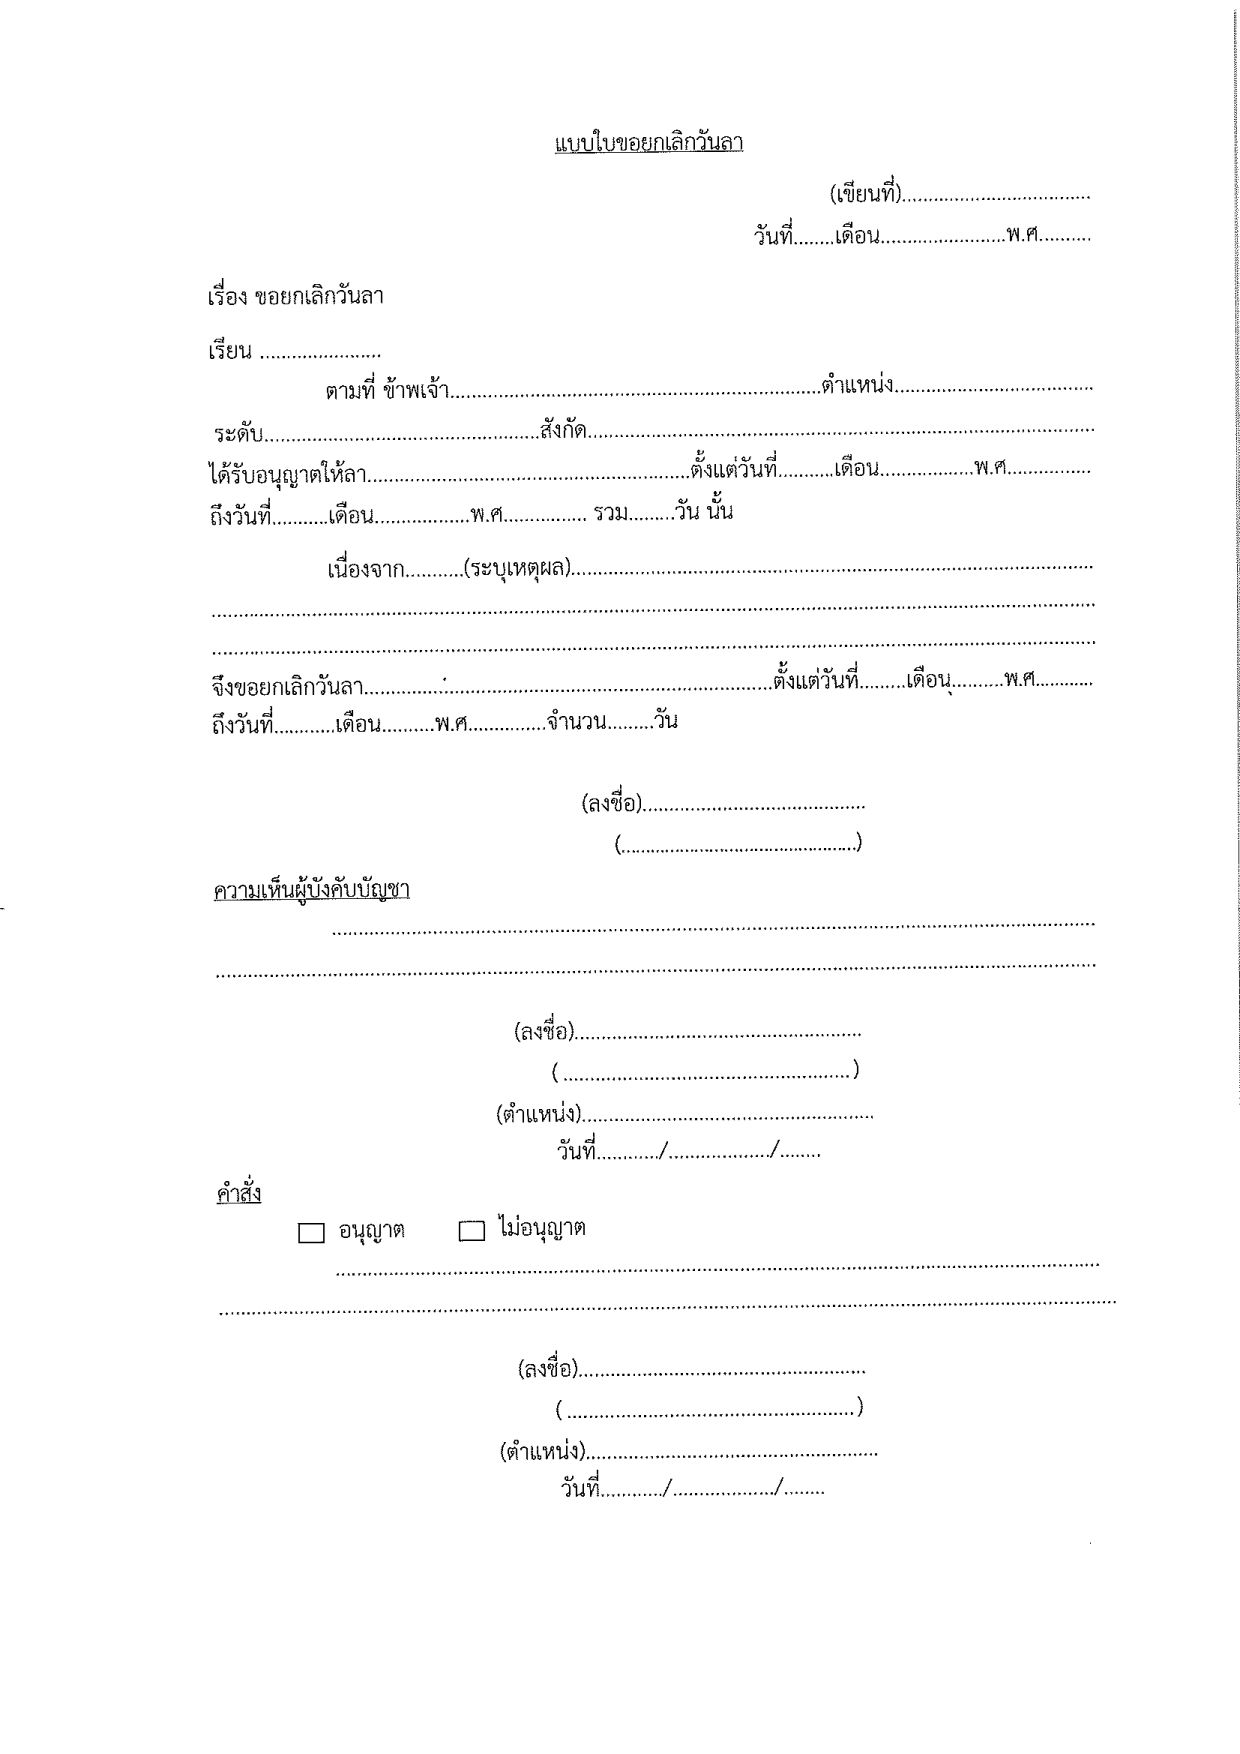 แบบใบขอยกเลิกวันลา
(เขียนที่)....................................
วันที่........เดือน........................พ.ศ..........
เรื่อง ขอยกเลิกวันลา
เรียน .......................
ตามที่ ข้าพเจ้า......................................................................ตำแหน่ง.....................................
ระดับ....................................................สังกัด................................................................................................
ได้รับอนุญาตให้ลา.............................................................ตั้งแต่วันที่...........เดือน..................พ.ศ................
ถึงวันที่...........เดือน..................พ.ศ................ รวม.........วัน นั้น
เนื่องจาก...........(ระบุเหตุผล)...................................................................................................
.......................................................................................................................................................................
.......................................................................................................................................................................
จึงขอยกเลิกวันลา.............................................................................ตั้งแต่วันที่.........เดือน..........พ.ศ...........
ถึงวันที่............เดือน..........พ.ศ...............จำนวน.........วัน
(ลงชื่อ)..........................................
(............................................)
ความเห็นผู้บังคับบัญชา
................................................................................................................................................
.......................................................................................................................................................................
(ลงชื่อ)......................................................
( ...................................................... )
(ตำแหน่ง).......................................................
วันที่............/...................../........
คำสั่ง
☐ อนุญาต ☐ ไม่อนุญาต
................................................................................................................................................
.......................................................................................................................................................................
(ลงชื่อ)......................................................
( ...................................................... )
(ตำแหน่ง).......................................................
วันที่............/...................../........